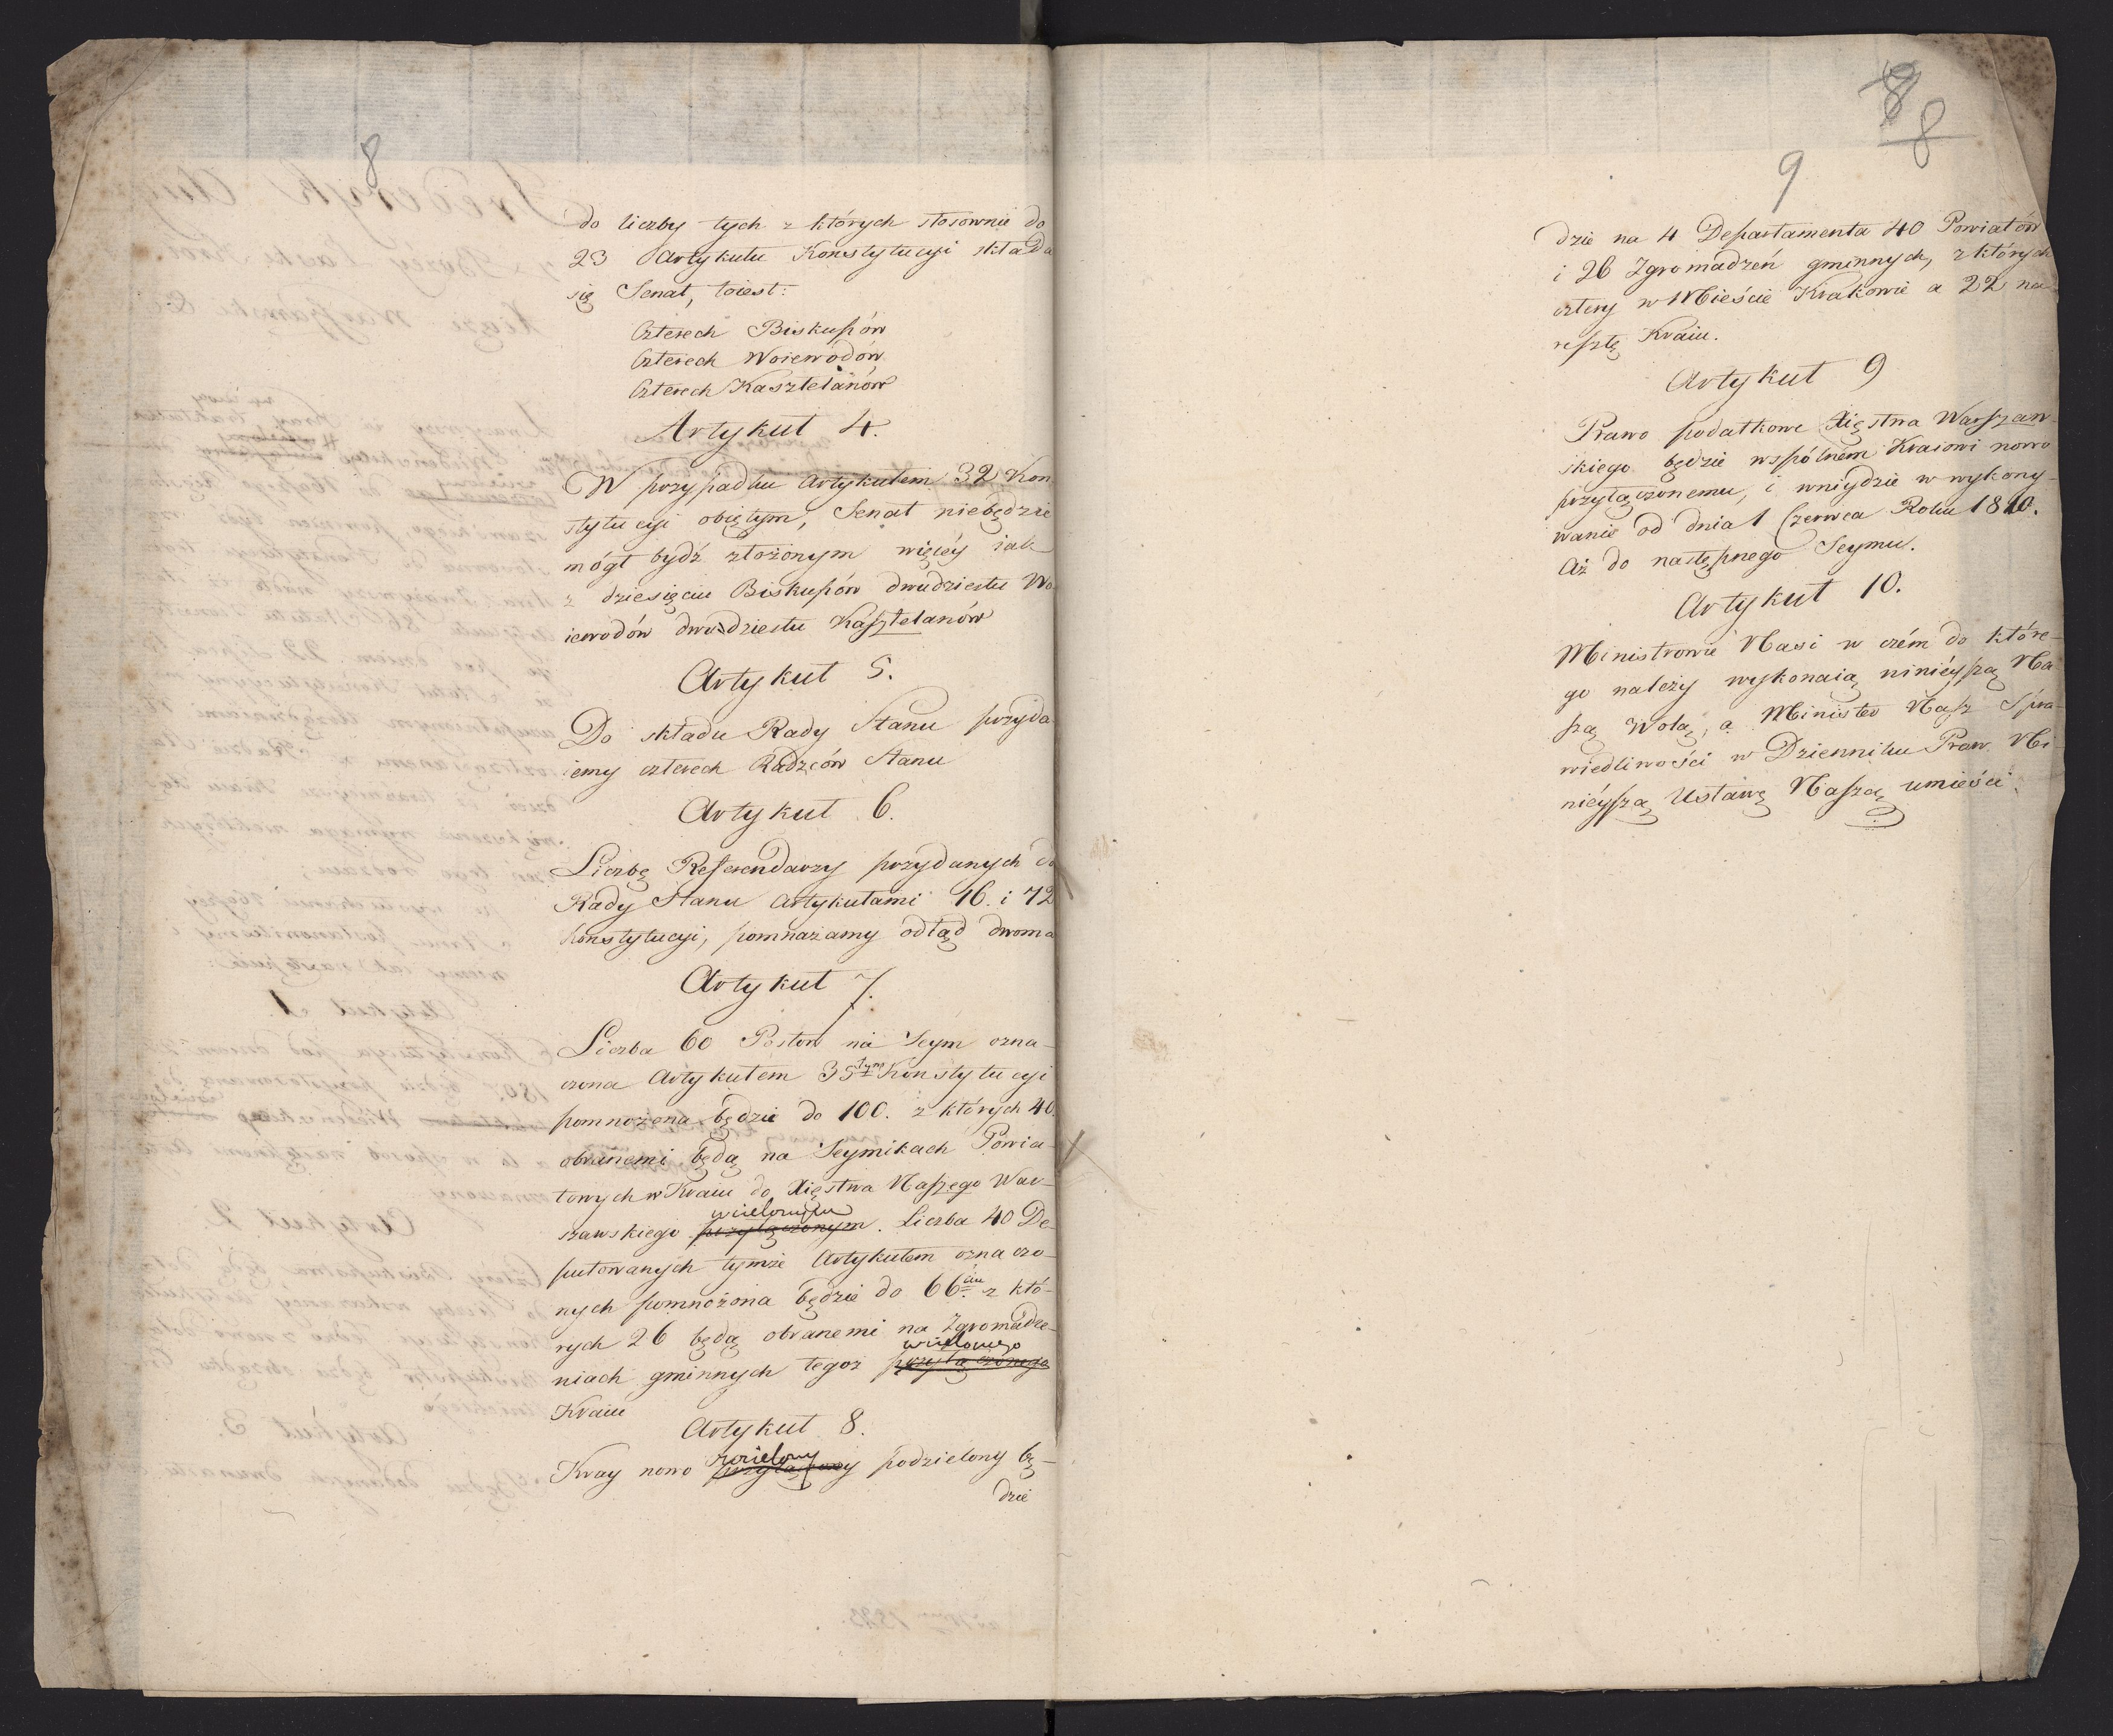 8
do liczby tych z których stosownie do
23 Artykułu Konstytucyi składa
się Senat, toiest:
Czterech Biskupów
Czterech Woiewodów
Czterech Kasztelanów
Artykuł 4.
W przypadku Artykułem 32 Kon
stytucyi obiętym, Senat niebędzie
mógł bydź złożonym więcéy iak
z dziesięciu Biskupów dwudziestu Wo
iewodów dwudziestu Kasztelanów
Artykuł 5.
Do składu Rady Stanu przyda
iemy czterech Radzców Stanu
Artykuł 6.
Liczbę Referendarzy przydanych do
Rady Stanu Artykułami 16. i 72
Konstytucyi, pomnażamy odtąd dwoma
Artykuł 7.
Liczba 60 Posłow na Seym ozna-
czona Artykułem 35tym Konstytucyi
pomnożona będzie do 100. z których 40.
obranemi będą na Seymikach Powia-
towych w Kraiu do Xięstwa Naszego War-
wcielonym
szawskiego przyłączonym. Liczba 40 De-
putowanych tymże Artykułem ozna czo-
nych pomnożona będzie do 66ciu z któ-
rych 26 będą obranemi na Zgromadze-
wcielonego
niach gminnych tegoż przyłączonego
Kraiu
Artykuł 8.
wcielony
Kray nowo przyłączony podzielony bę-
dzie
8
8
9
dzie na 4 Departamenta 40 Powiatów
i 26 Zgromadzeń gminnych, z których
cztery w Mieście Krakowie a 22 na
resztę Kraiu.
Artykuł 9
Prawo podatkowe Xięstwa Warszaw-
skiego będzie wspólnem Kraiowi nowo
przyłączonemu, i wniydzie w wykony-
wanie od dnia 1 Czerwca Roku 1810.
Aż do następnego Seymu.
Artykuł 10.
Ministrowie Nasi w czém do które-
go należy wykonaią ninieyszą Na-
szą Wolą, a Minister Nasz Spra-
wiedliwości w Dzienniku Praw Ni-
nieyszą Ustawę Naszą umieści.